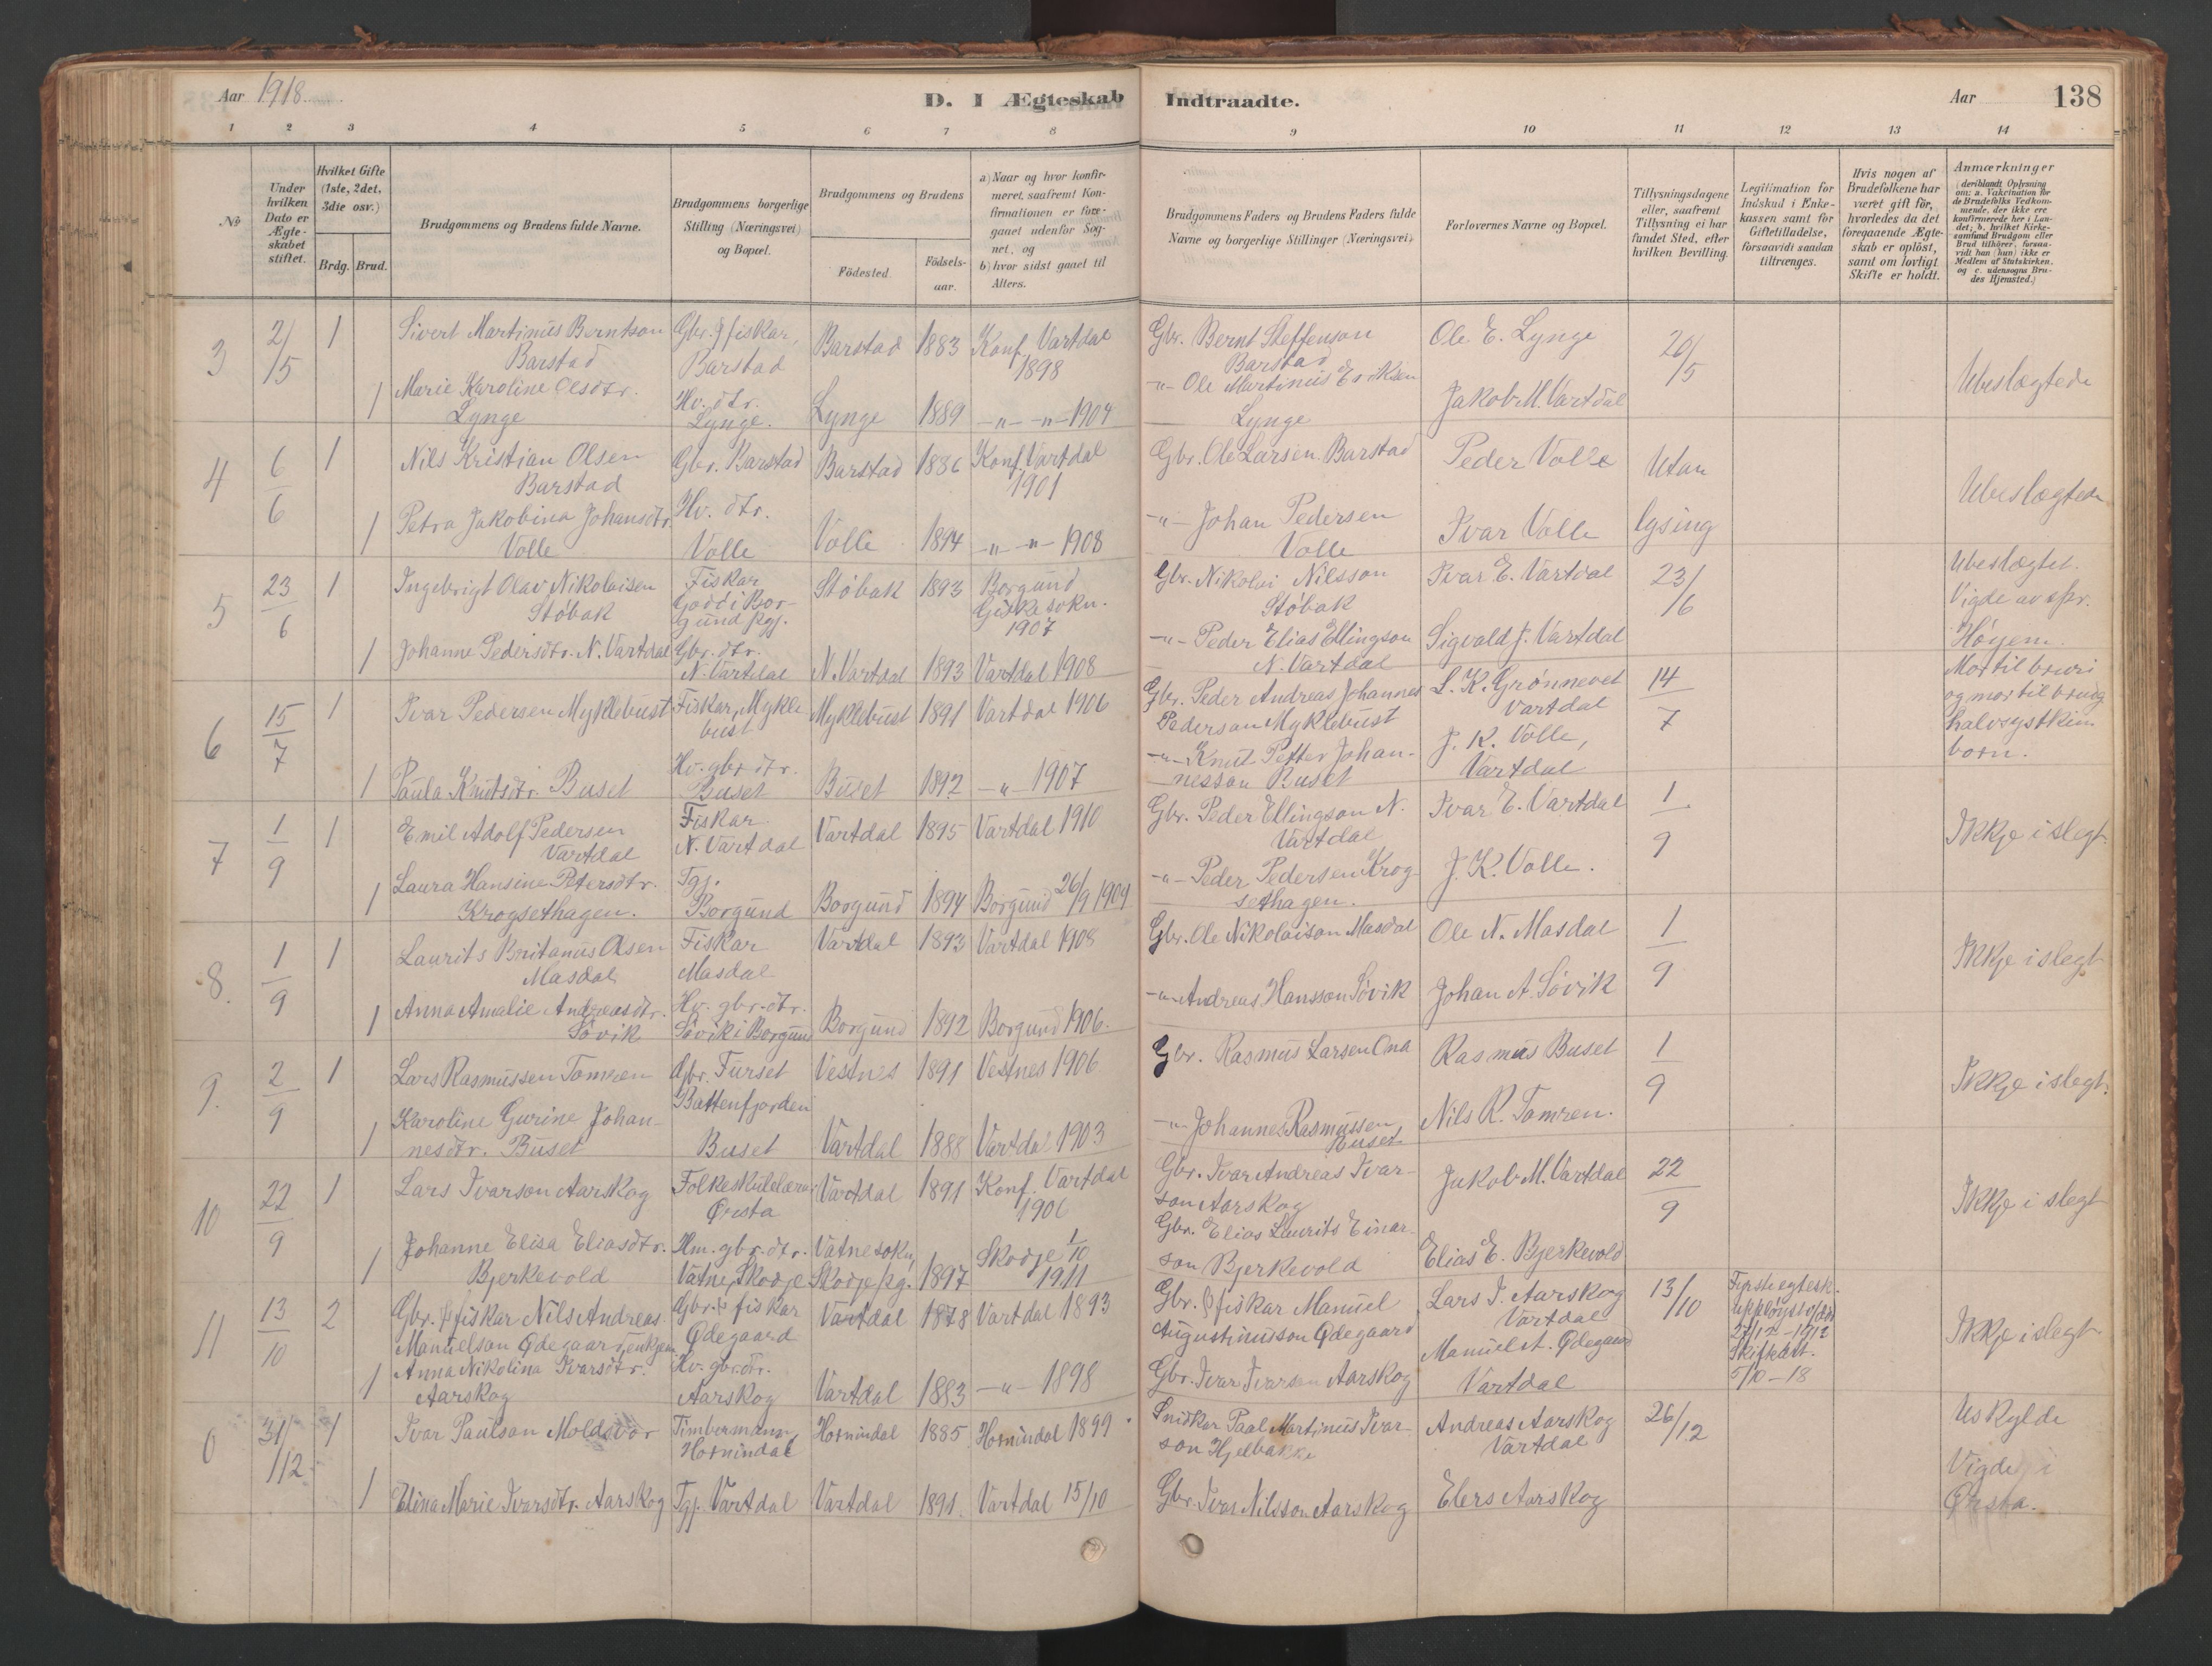 Aar 1918
D. I Ægteskab Indtraadte.
Aar 138
1 2 3 4 5 6 7 8 9 10 11 12 13 14
No
Under hvilken Dato er Ægteskabet stiftet.
Hvilket Gifte (1ste, 2det, 3die osv.)
Brdg. Brud.
Brudgommens og Brudens fulde Navne.
Brudgommens borgerlige Stilling (Næringsvei) og Bopæl.
Brudgommens og Brudens
Födested.
Födsels-aar.
a) Naar og hvor konfirmeret, saafremt Konfirmationen er foregaaet udenfor Sognet, og
b) hvor sidst gaaet til Alters.
Brudgommens Faders og Brudens Faders fulde Navne og borgerlige Stillinger (Næringsvei)
Forlovernes Navne og Bopæl.
Tillysningsdagene eller, saafremt Tillysning ei har fundet Sted, efter hvilken Bevilling.
Legitimation for Indskud i Enkekassen samt for Giftetilladelse, forsaavidt saadan tiltrænges.
Hvis nogen af Brudefolkene har været gift för, hvorledes da det foregaaende Ægteskab er oplöst, samt om lovligt Skifte er holdt.
Anmærkninger
(deriblandt Oplysning om: a. Vakcination for de Brudefolks Vedkommende, der ikke ere konfirmerede her i Landet; b. hvilket Kirkesamfund Brudgom eller Brud tilhörer, forsaavidt han (hun) ikke er Medlem af Statskirken, og c. udensogns Brudes Hjemsted.)
3 2/15 1 Sivert Martinus Berntson Barstad Gbr. & fiskar, Barstad Barstad 1883 Konf. Vartdal 1898 Gbr. Bernt Steffenson Barstad Ole E. Lynge 20/5 Ubeslægtede
1 Marie Karoline Olsdtr. Lynge Hv. dtr. Lynge. Lynge 1889 -"- -"- 1904 -"- Ole Martinus Eriksen Lynge Jakob M. Vartdal
4 6/6 1 Nils Kristian Olsen Barstad Gbr. Barstad Barstad 1886 Konf. Vartdal 1901 Gbr. Ole Larsen Barstad Peder Volle Utan lysing Ubeslægtede
1 Petra Jakobina Johansdtr. Volle Hv. dtr. Volle Volle 1894 -"- -"- 1908 -"- Johan Pedersen Volle Ivar Volle
5 23/6 1 Ingebrigt Olav Nikolaisen Støbak Fiskar Godøi Borgund pgj. Støbak 1893 Borgund Giskesokn. 1907 Gbr. Nikolai Nilsson Støbak Ivar E. Vartdal 23/6 Ubeslægtet. Vigde av spr. Höyem.
1 Johanne Pedersdtr. N. Vartdal Gbr. dtr. N. Vartdal N. Vartdal 1893 Vartdal 1908 -"- Peder Elias Ellingson N. Vartdal Sigvald J. Vartdal
6 15/7 1 Ivar Pedersen Myklebust Fiskar, Myklebust Myklebust 1891 Vartdal 1906 Gbr. Peder Andreas Johannes Pederson Myklebust L. K. Grønnevet Vartdal 14/7 Mor til bruri og mor til brudg halvsystkinborn.
1 Paula Knutsdtr. Buset Hv. gbr. dtr. Buset Buset 1892 -"- 1907 -"- Knut Petter Johannesson Buset J. K. Volle, Vartdal
7 1/9 1 Emil Adolf Pedersen Vartdal Fiskar N. Vartdal Vartdal 1895 Vartdal 1910 Gbr. Peder Ellingson N. Vartdal Ivar E. Vartdal 1/9 Ikkje i slegt.
1 Laura Hansine Petersdtr. Krogsethagen. Tgj. Borgund Borgund 1894 Borgund 26/9 1909 -"- Peder Pedersen Krogsethagen. J. K. Volle.
8. 1/9 1 Laurits Britanus Olsen Masdal Fiskar Masdal Vartdal 1893 Vartdal 1908 Gbr. Ole Nikolaison Masdal Ole N. Masdal 1/9 Ikkje i slegt
1 Anna Amalie Andreasdtr. Søvik Hv. gbr. dtr. Søvik i Borgund Borgund 1892 Borgund 1906. -"- Andreas Hansson Søvik Johan A. Søvik
9. 2/9 1 Lars Rasmussen Tomren Gbr. Furset Battenfjorden Vestnes 1891 Vestnes 1906 Gbr. Rasmus Larsen Ona Rasmus Buset 1/9 Ikkje i slegt.
1 Karoline Gurine Johannesdtr. Buset Buset Vartdal 1888 Vartdal 1903 -"- Johannes Rasmussen Buset Nils R. Tomren.
10 22/9 1 Lars Ivarson Aarskog Folkeskulelærar Ørsta Vartdal 1891 Konf. Vartdal 1906 Gbr. Ivar Andreas Ivarson Aarskog Jakob M. Vartdal 22/9 Ikkje i slegt
1 Johanne Elisa Eliasdtr. Bjerkevold Hm. gbr. dtr. Vatne, Skodje Vatnesokn, Skodje pg. 1897 Skodje 1/10 1911 Gbr. Elias Laurits Einarson Bjerkevold Elias E. Bjerkevold
11 13/10 2 Gbr. & fiskar Nils Andreas Manuelson Ødegaard, enkjem. Gbr. & fiskar Ødegaard Vartdal 1878 Vartdal 1893 Gbr. & fiskar Manuel Augustinusson Ødegaard Lars I. Aarskog Vartdal 13/10 Fyrste egtesk. upployst v/død 27/12-1912 Skifteatt. 5/10-18 Ikkje i slegt
1 Anna Nikolina Ivarsdtr. Aarskog Hv. gbr. dtr. Aarskog Vartdal 1883 -"- 1898 Gbr. Ivar Ivarson Aarskog Manuel A. Ødegaard Vartdal
0 31/12 1 Ivar Paulson Moldsvor Timbermann, Hornindal Hornindal 1885 Hornindal 1899 Snidkar Paal Martinus Ivarson Hjelbakke Andreas Aarskog Vartdal 26/12 Uskylde Vigde i Ørsta.
1 Elina Marie Ivarsdtr. Aarskog Tgj. Vartdal Vartdal 1891. Vartdal 15/10 Gbr. Ivar Nilsson Aarskog Elers Aarskog